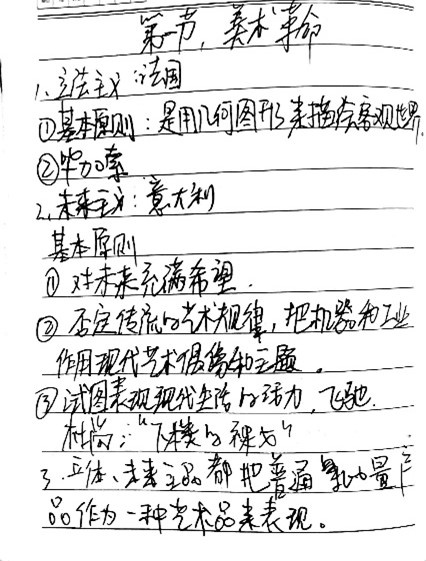 第一节,美术革命
1、立体主义:法国
①基本原则:是用几何图形来描绘客观世界.
②毕加索
2、未来主义:意大利
基本原则
①对未来充满希望.
②否定传统的艺术规律,把机器和工业
作用现代艺术偶像和主题.
③试图表现现代生活的活力,飞驰.
杜尚:"下楼的裸女"
3、立体、未来主义都把普通 的量产
品作为一种艺术品来表现。